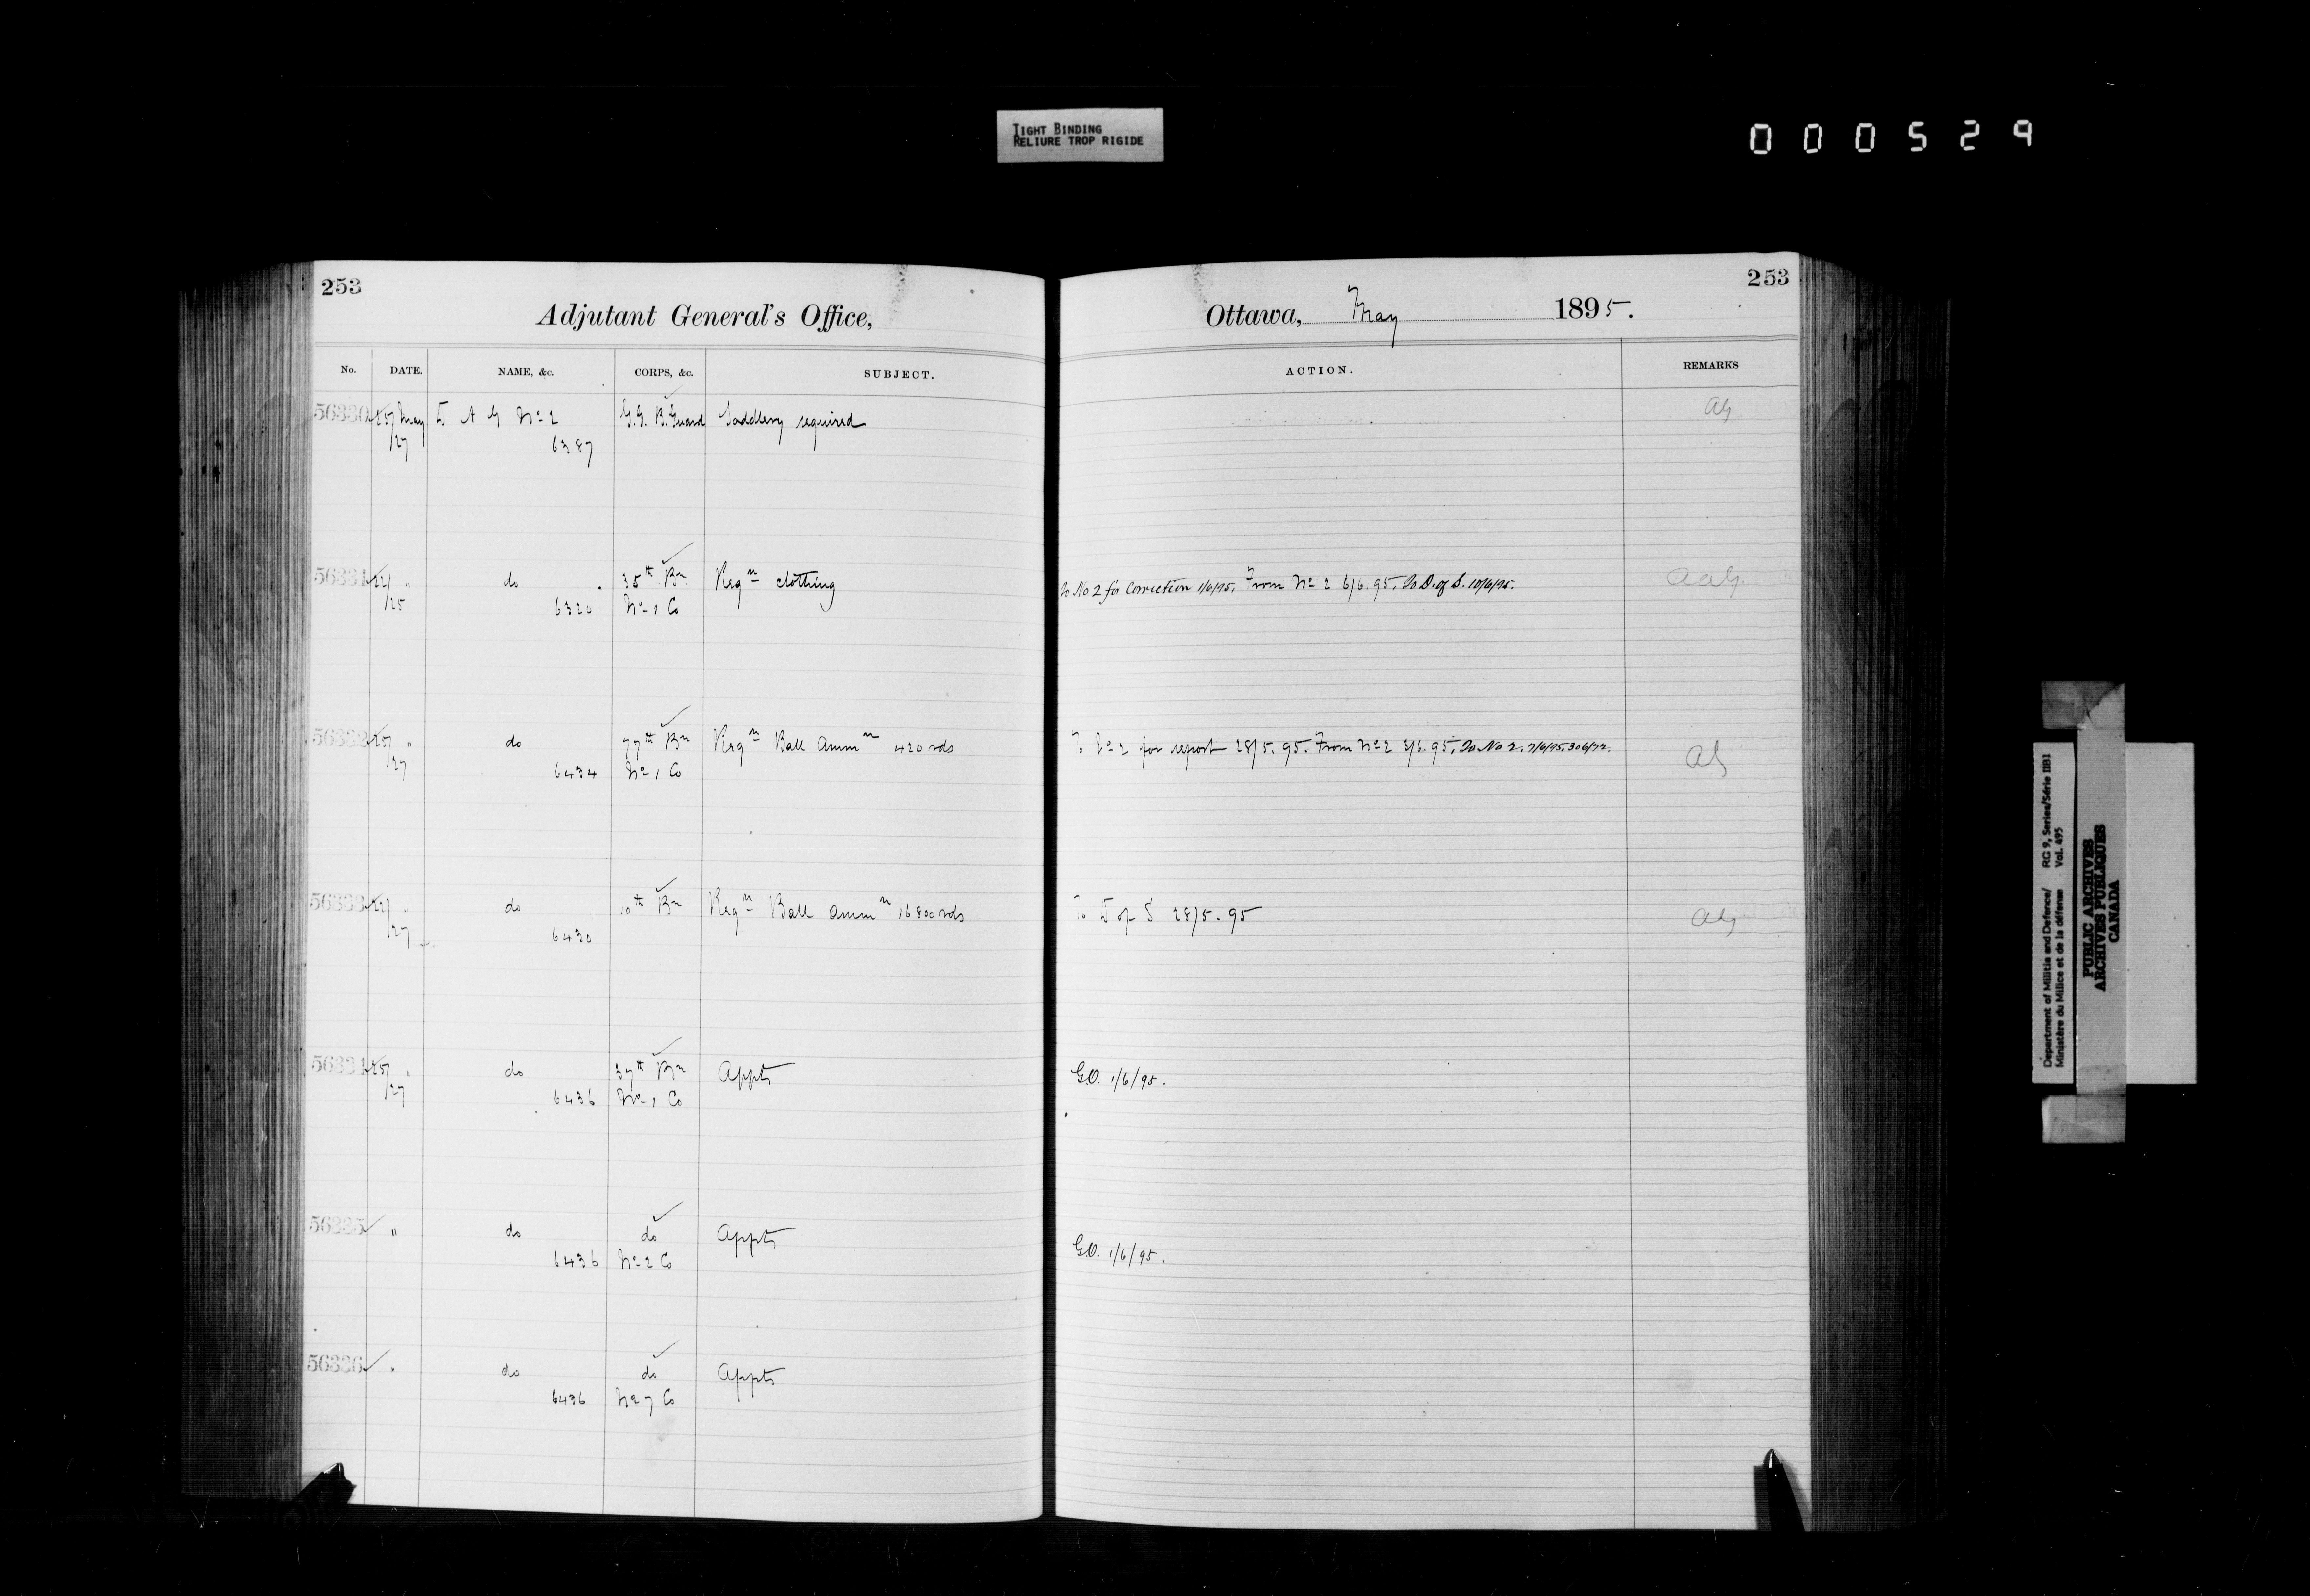 TIGHT BINDING
RELIURE TROP RIGIDE
000529
253
Adjutant General's Office,
No. DATE. NAME, &c. CORPS, &c. SUBJECT.
56330 25/ May D A G No 2 G.G. B. Guard Saddlery required
/27 6387
56331 22/ " do 35th Bn Reqn clothing
/25 6320 No 1 Co
56332 25/ " do 77th Bn Reqn Ball Ammn 420 rds
/27 6434 No 1 Co
56333 22/ " do 10th Bn Reqn Ball Ammn 16800 rds
/27 6430
56334 25/ " do 37th Bn Appts
/27 6436 No 1 Co
56335 " do do Appts
6436 No 2 Co
56336 " do do Appts
6436 No 7 Co
253
Ottawa, May 1895.
ACTION. REMARKS
AG
To No 2 for Correction 1/6/95. From No 2 6/6.95. To D. of S. 10/6/95. AAG.
To No 2 for report 28/5.95. From No 2 3/6.95. To No 2. 7/6/95. AG
To D of S 28/5.95 AG
G.O. 1/6/95.
G.O. 1/6/95.
Department of Militia and Defence/ RG 9, Series/Série IIB1
Ministère du Milice et de la défense Vol. 495
PUBLIC ARCHIVES
ARCHIVES PUBLIQUES
CANADA